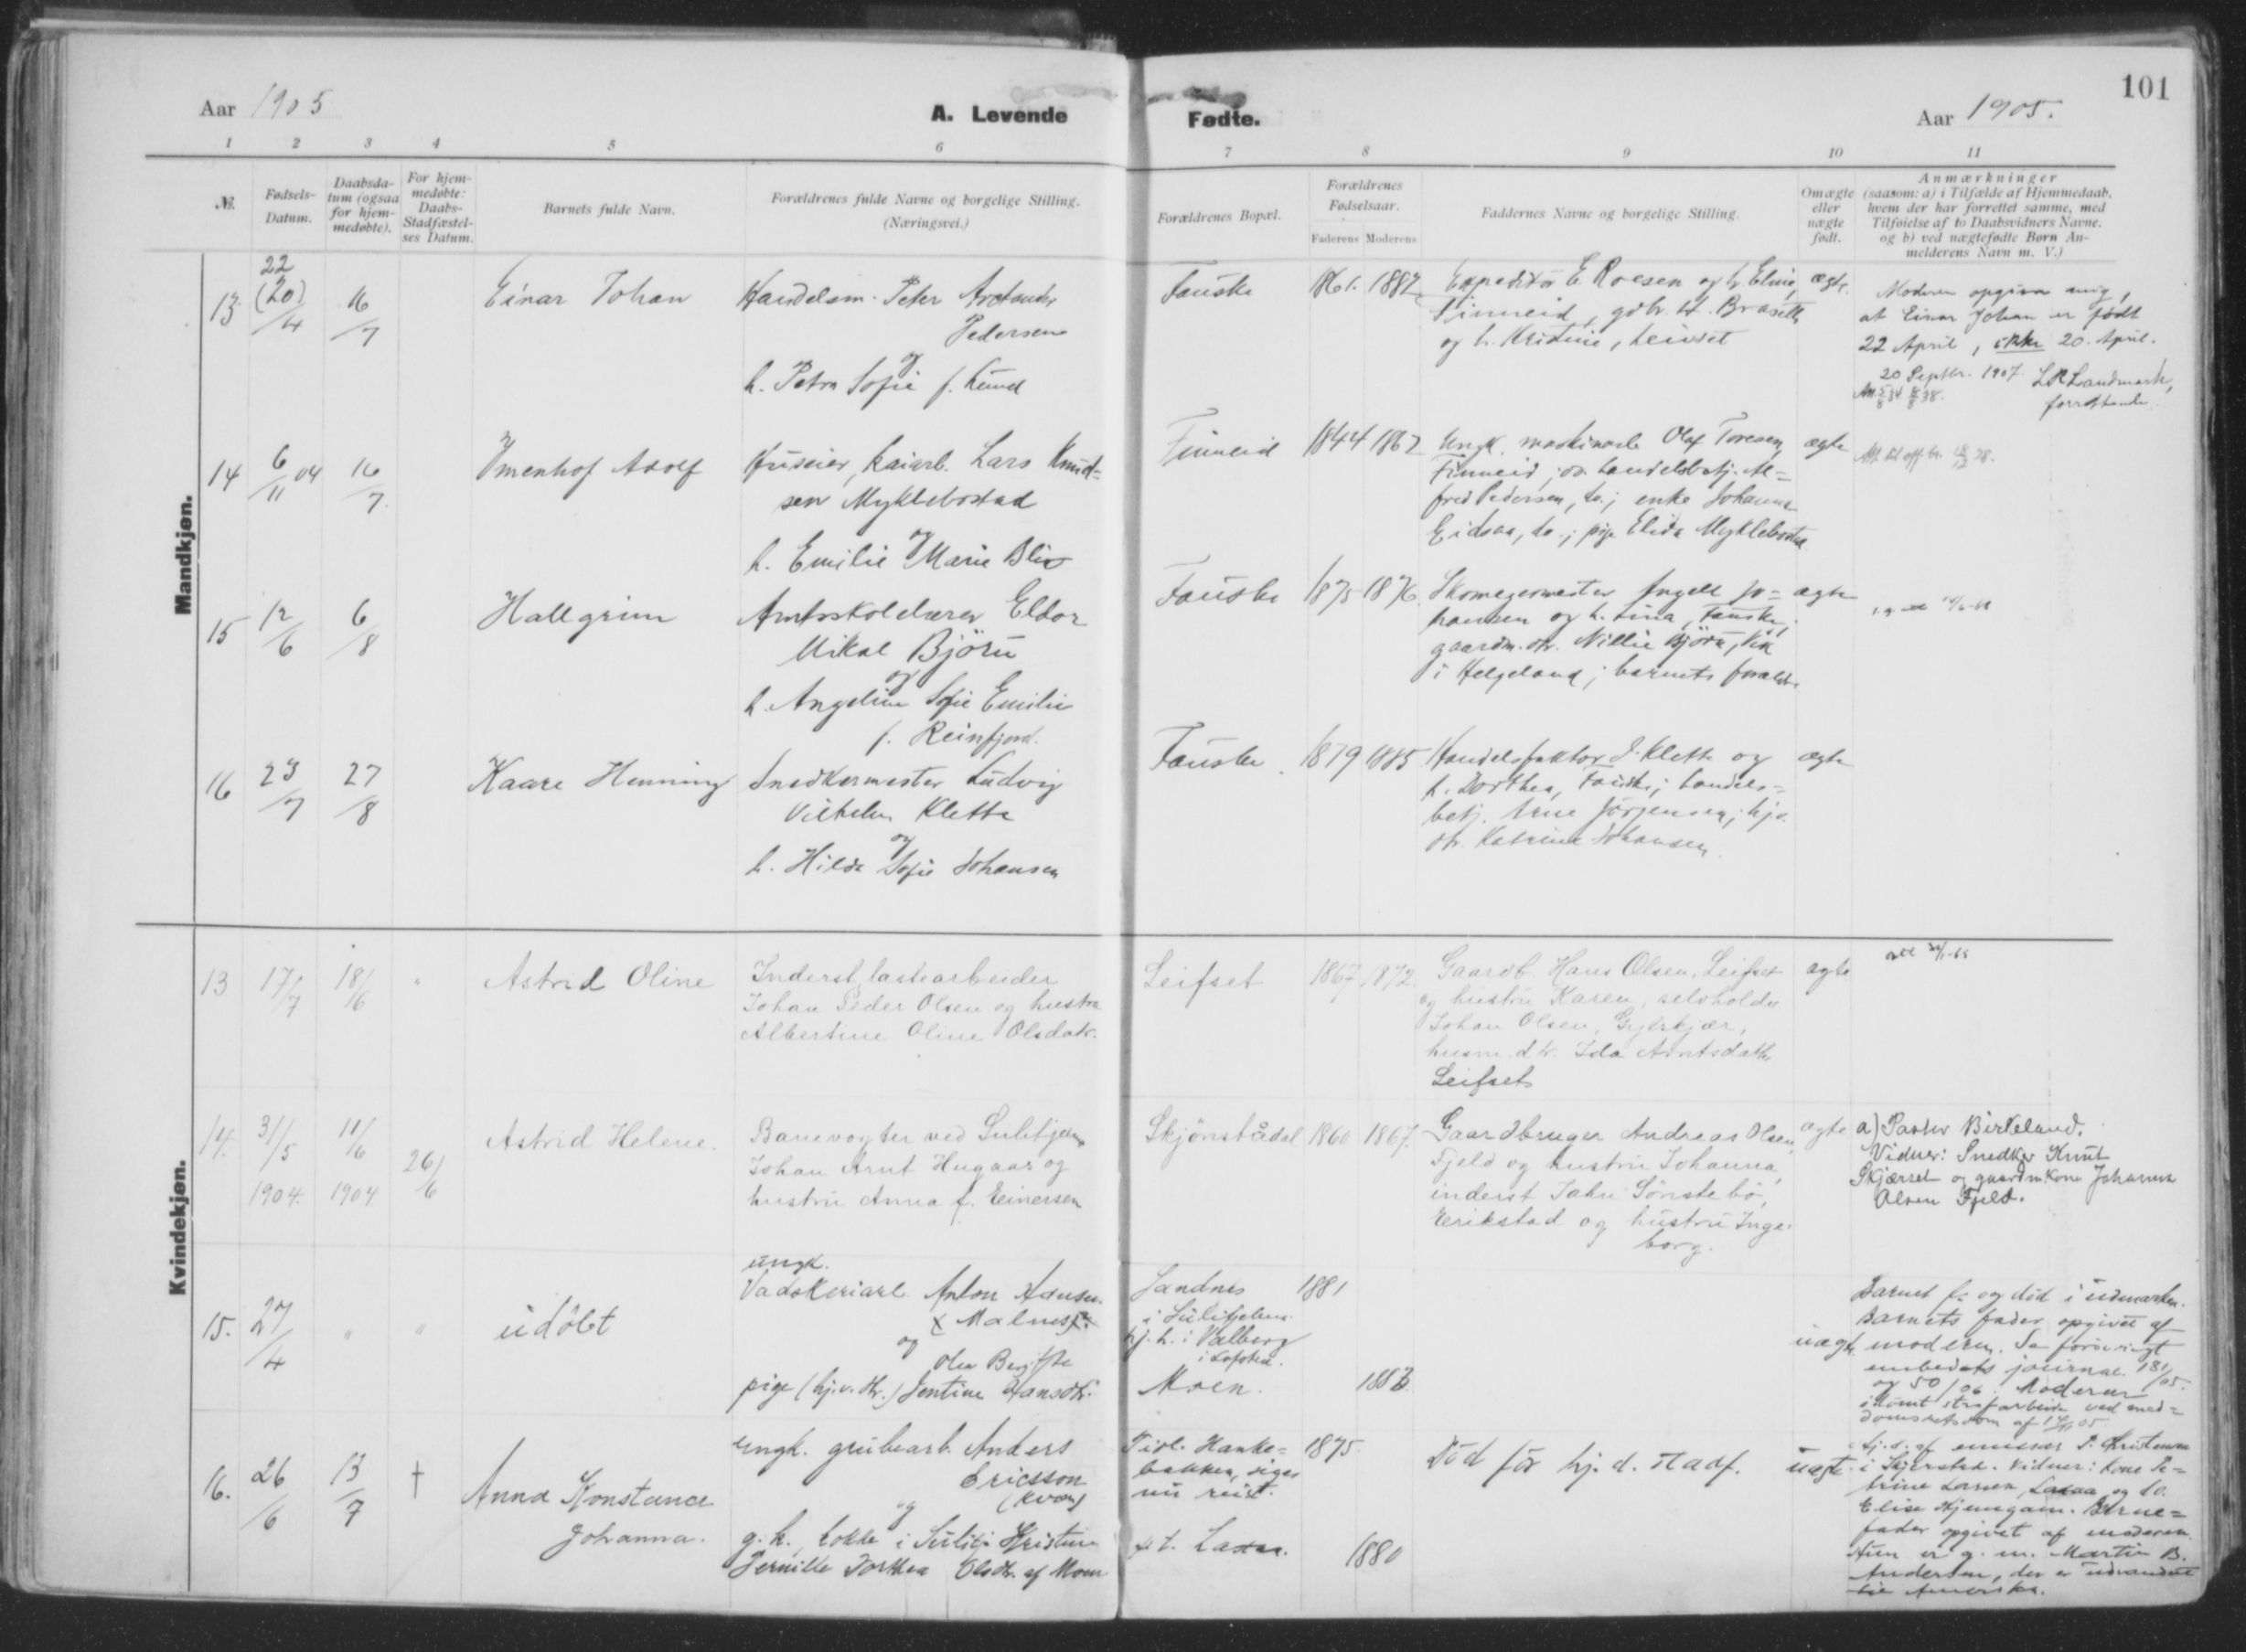 101
Aar 1905
A. Levende
Fødte.
Aar 1905.
1 2 3 4 5 6 7 8 9 10 11
№
Fødsels-
Datum.
Daabsda-
tum (ogsaa
for hjem-
medøbte).
For hjem-
medøbte:
Daabs-
Stadfæstel-
ses Datum.
Barnets fulde Navn.
Forældrenes fulde Navne og borgelige Stilling.
(Næringsvei.)
Forældrenes Bopæl.
Forældrenes
Fødselsaar.
Faderens Moderens
Faddernes Navne og borgelige Stilling.
Omægte
eller
uægte
født.
Anmærkninger
(saasom: a) i Tilfælde af Hjemmedaab,
hvem der har forrettet samme, med
Tilføielse af to Daabsvidners Navne.
og b) ved uægtefødte Børn An-
melderens Navn m. V.)
Mandkjøn.
13
22
(20)
/4
16
/7
Einar Johan
Handelsm. Peter
Pedersen
og
h. Petra Sofie f. Lund
Fauske
1861. 1882
Expeditør E Roesen og h. Eline,
Finneid, gdbr.
og h. Kristine, Leivset
ægte.
Moderen opgiver mig,
at Einar Johan er født
22 April, ikke 20. April.
20 Septbr. 1907 Landmark,
14
6/11 04
16
/7.
Imenhof Adolf
Huseier, kaiarb. Lars Knud=
sen Myklebostad
og
h. Emilie Marie Blix
Finneid
1844 1862
Ungk. maskinarb Olaf Toresen,
Finneid; do. handelsbetj. Al=
fred Pedersen, do.; enke Johanna
Eidsaa, do.; pige Elida Myklebostad
ægte
15
12
/6
6
/8
Hallgrim
Amtsskolelærer Eldor
Mikal Bjørn
og
h. Angeline Sofie Emilie
f. Reinfjord.
Fauske
1875 1876
Skomagermester Angell Jo=
hansen og h. Lina, Fauske;
gaardm. dtr. Nillie Bjørn, Vik
i Helgeland; barnets forældre
ægte
16
23
/7
27
/8
Kaare Henning
Snedkermester Ludvig
Vilhelm Klette
og
h. Hilda Sofie Johansen
Fauske
1879 1885
Handelsfaktor J. Klette og
h. Dorthea, Fauske; handels=
betj. Arne Jørgensen; hjv.
dtr. Katrine Johansen.
ægte
Kvindekjøn.
13
17/
7
18/
6
"
Astrid Oline
Inderst, lastearbeider
Johan Peder Olsen og hustru
Albertine Oline Olsdatr.
Leifset
1867 1872.
Gaardb. Hans Olsen, Leifset
og hustru Karen, selvholder
Johan Olsen,
husm. dtr. Ida Arntsdatter
Leifset
ægte
14.
31/
5
1904.
11/
6
1904.
26/
6
Astrid Helene.
Banevogter ved Sulitjelma
Johan Arnt Hugaas og
hustru Anna f. Einersen
Skjønstådal
1860 1867.
Gaardbruger Andreas Olsen,
Fjeld og hustru Johanna,
inderst Jahn Sønstebø,
Erikstad og hustru Inge-
borg.
ægte
a) Pastor Birkeland.
Vidner: Snedker Knut
Skjærset og gaardm.kone Johanna
Olsen Fjeld.
15.
27
/4
"
"
udøbt
ungk.
Vadskeriarb Anton Hansen
Malnes
og
Olea Bergitte
pige (hj.v. dtr.) Jentine Hansdtr.
Sandnes
i Sulitjelma.
hj. h. i Valberg
i Lofoten.
Moen.
1881
uægte
Barnet f. og død i udmarken.
Barnets fader opgivet af
moderen. Se forøvrigt
embedets journal 181/05.
og 50/06. Moderen
idømt strafarbeide ved med=
domsretsdom af
16.
26
/6
13
/7
†
Anna Konstance
Johanna.
ungk. grubearb. Anders
Ericsson
(kvæn)
og
g. k., kokke i Sulitj. Kristine
Pernille Dorthea Olsdtr. af Moen
Tidl. Hanke=
bakken, siges
nu reist.
p. t.
1875.
1880
Død før hj. d. stadf.
uægte
Hj. d. af P. Christensen
i Skjerstad. Vidner: Kone Pe=
trine Larsen, og do.
Elise Barne=
fader opgivet af moderen.
Hun er g. m. Martin B.
Andersen, der er udvandret
til Amerika.